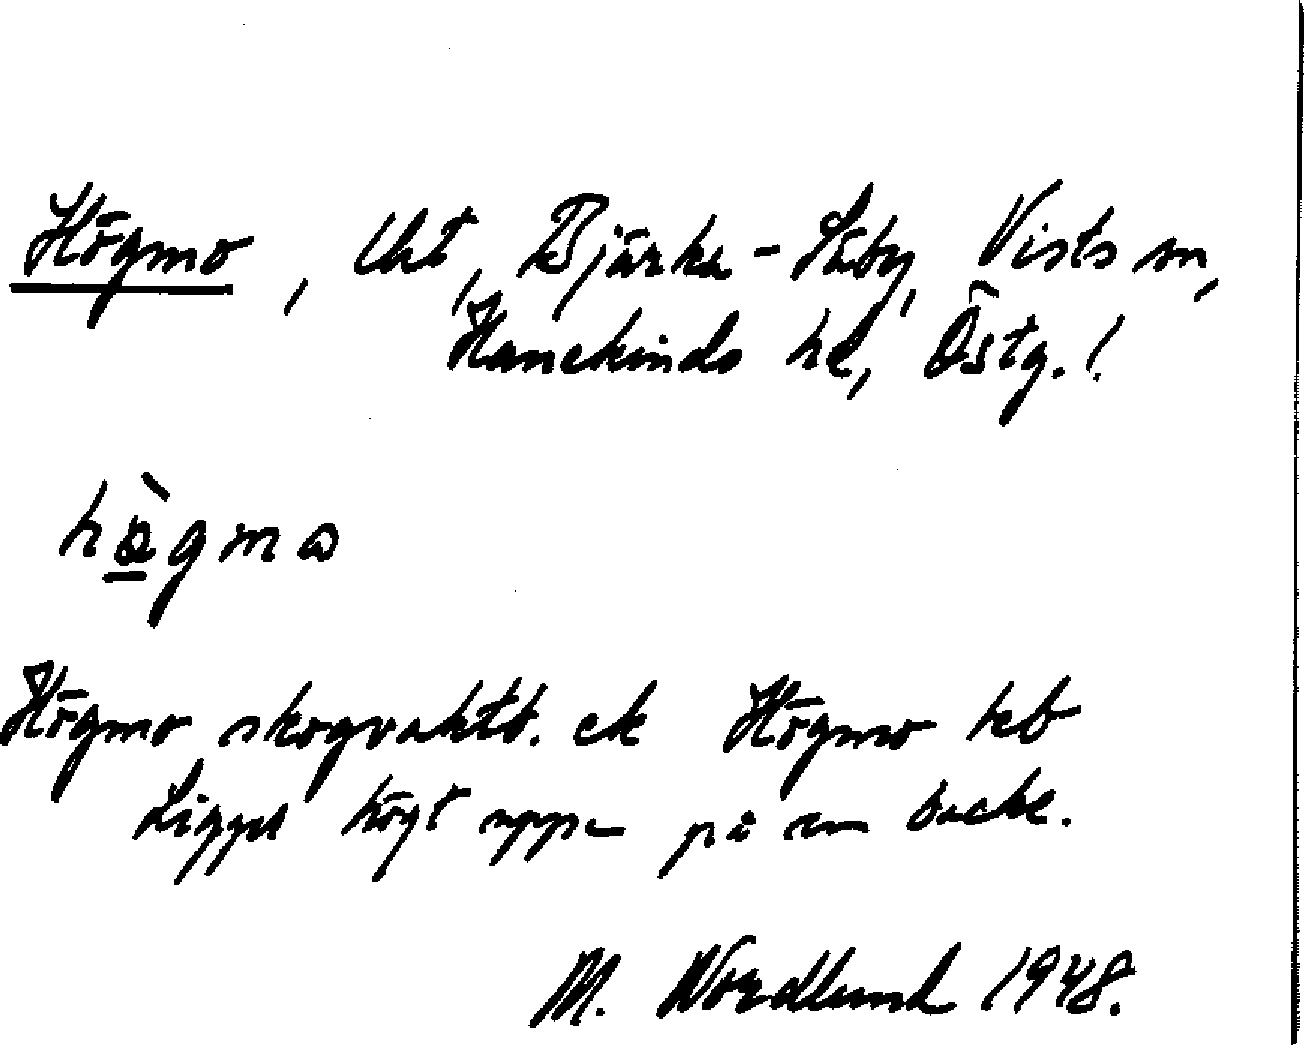 Högmo, lht, Bjärka-Säby, Vists sn,
Hanekinds hd, Östg.!
hö̀gmo
Högmo skogvaktb. ek Högmo heb
Ligger högt uppe på en backe.
M. Nordlund 1948.